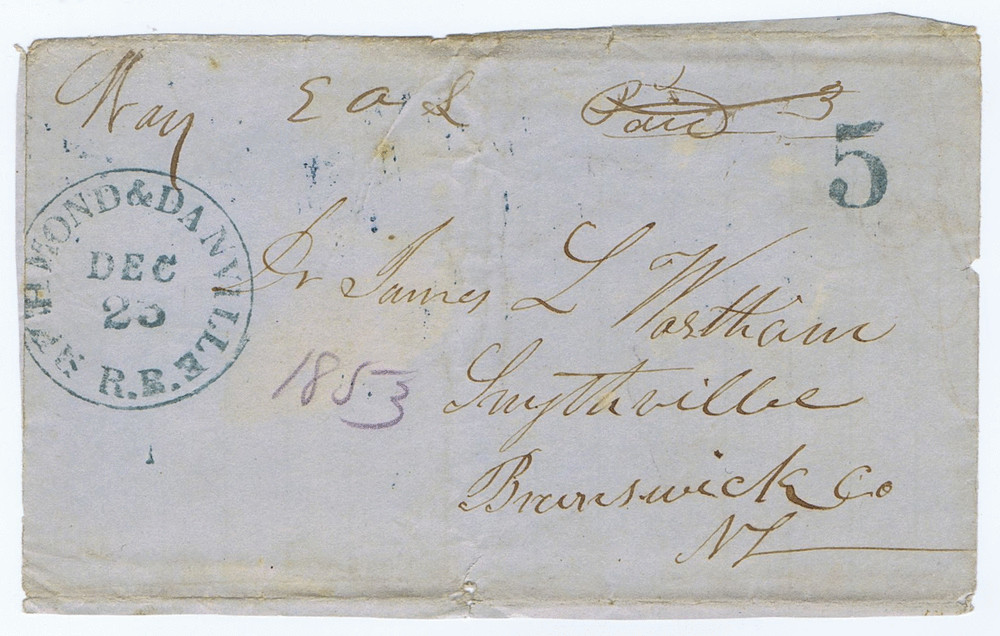 Way
Paid 3
5
RICHMOND & DANVILLE R.R.
DEC
25
Dr James L Wortham
1853
Smythville
Brunswick Co
NC